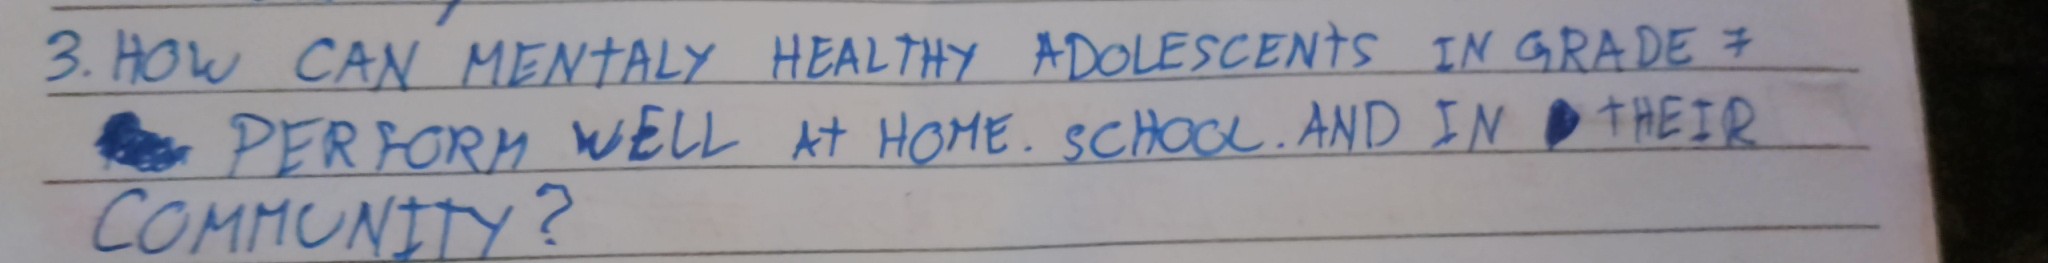 3. HOW CAN MENTALY HEALTHY ADOLESCENTS IN GRADE 7
PERFORM WELL AT HOME. SCHOOL. AND IN THEIR
COMMUNITY?